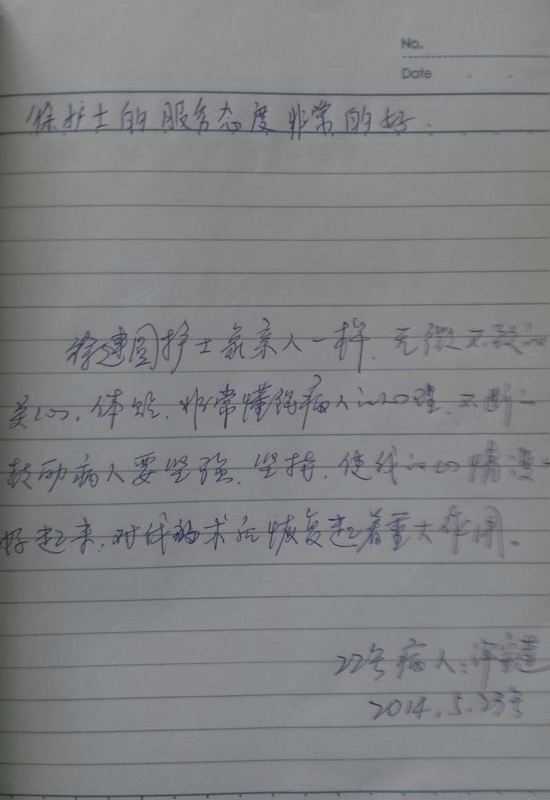 No.
Date
徐护士的服务态度非常的好.
徐建圆护士象亲人一样,无微不致的
关心,体贴,非常懂得病人的心理,不断的
鼓励病人要坚强,坚持,使我的心情漫
好起来,对我的术后恢复起着重大作用。
22号病人:许
2014.5.23号